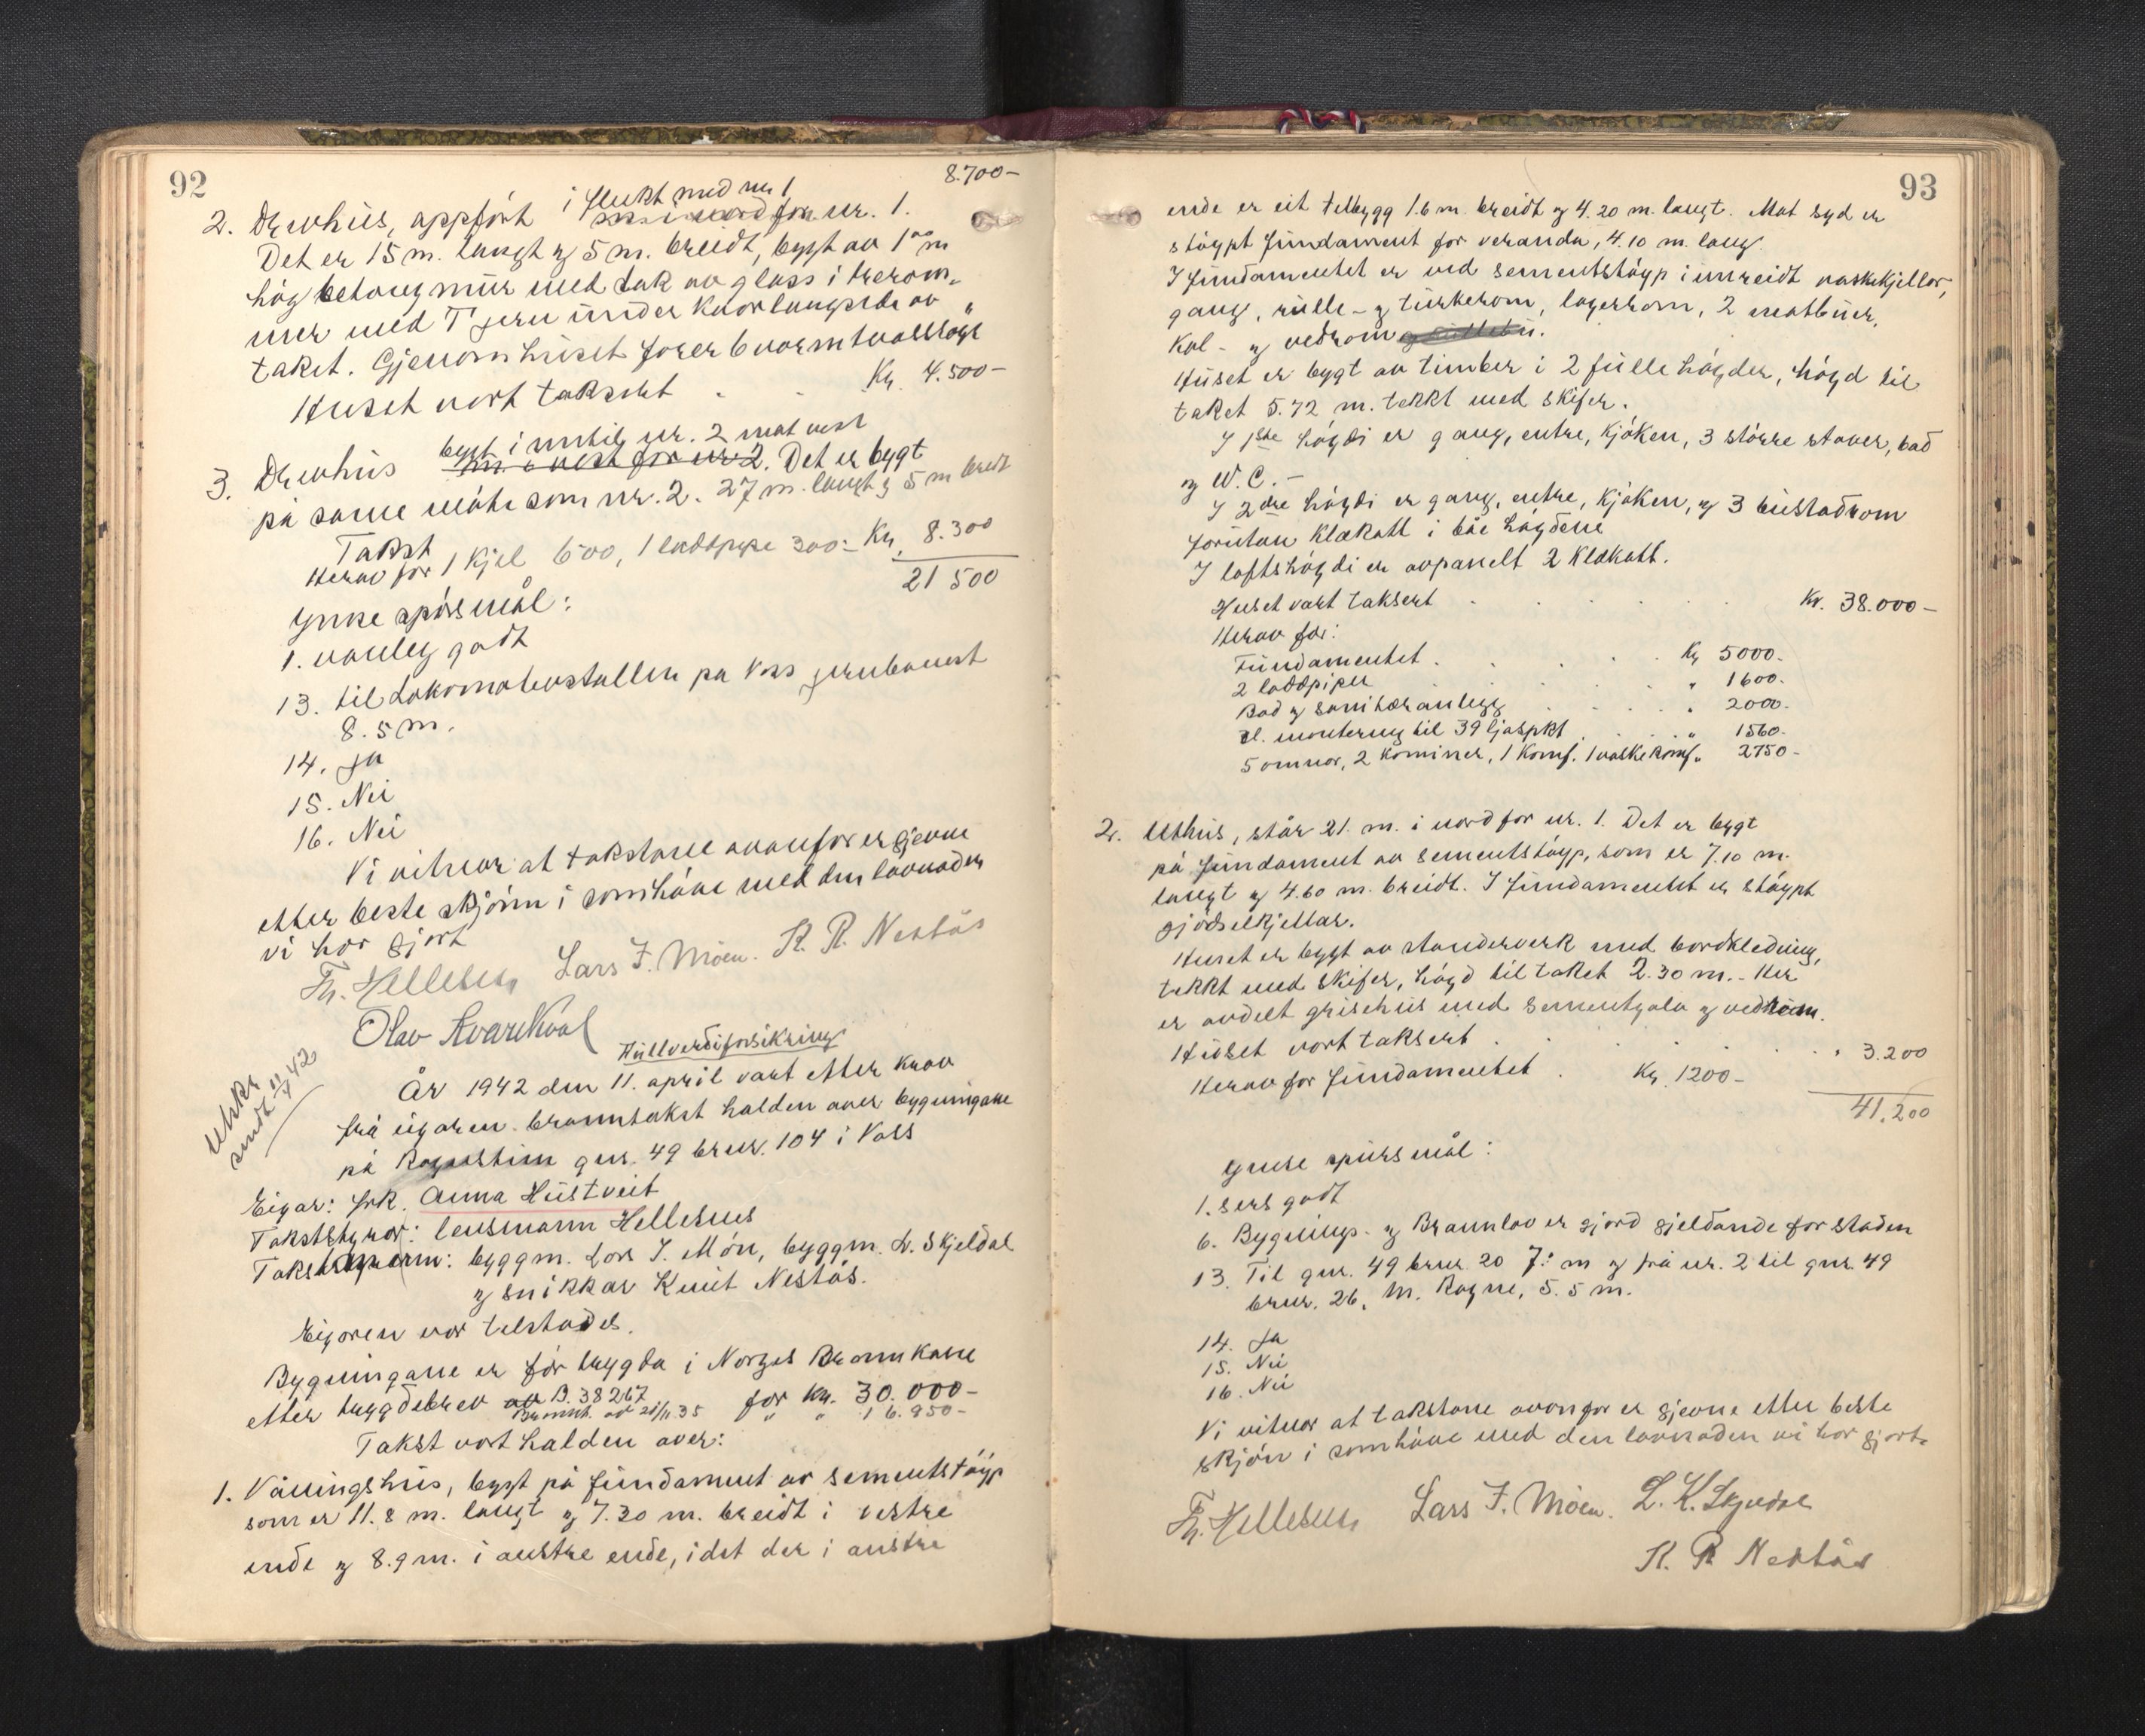 92
8.700-
i flukt med nr 1
2. Drivhus, oppført for nr. 1.
Det er 15 m. langt og 5 m. breidt, bygt av 1 m
høg betongmur med tak av glass i treram-
mer med T jern under kvar langside av
taket. Gjenom huset fører 6 varmtvass
Huset vart taksert . . Kr. 4.500-
bygt i nr. 2 mot vest
3. Drivhus m. i vest for nr 2. Det er bygt
på same måte som nr. 2. 27 m. langt og 5 m breidt
Takst Kr. 8.300
Herav for 1 kjel 600, 1 loddpipe 300.-
21 500
Ymse spørsmål:
1. vanleg godt
13. til Lokomotivstallen på Voss jernbanest
8.5 m.
14. Ja
15. Nei
16. Nei
Vi vitnar at takstane ovanfor er gjevne
etter beste skjønn i samhøve med den lovnaden
vi har gjort
Th. Hellesnes Lars J. Møen. K. R. Nestås
Olav Kvarekval
Utskr.
sendt 11/4 42
Fullverdiforsikring
År 1942 den 11. april vart etter krav
frå eigaren branntakst halden over bygningane
på Rognheim gnr. 49 brnr. 104 i Voss
Eigar: frk. Anna Hustveit
Takststyrar: lensmann Hellesnes
Takstmenn: byggm. Lars J. Møn, byggm. L. Skjeldal
og snikkar Knut Nestås.
Eigaren var tilstades.
Bygningane er før trygda i Norges Brannkasse
etter trygdebrev av B. 38267 for kr. 30.000-
Brannt. av 21/11.35 " " 16.950-
Takst vart halden over:
1. Våningshus, bygt på fundament av sementstøyp
som er 11.8 m. langt og 7.30 m. breidt i vestre
ende og 8.9 m. i austre ende, idet der i austre
93
ende er eit tilbygg 1.6 m. breidt og 4.20 m. langt. Mot syd er
støypt fundament for veranda, 4.10 m. lang.
I fundamentet er ved sementstøyp innreidt vaskekjellar,
gang, rulle- og turkerom, lagerrom, 2 matbuer,
kol- og vedrom
Huset er bygt av timber i 2 fulle høgder, høgd til
taket 5.72 m. tekkt med skifer.
I 1ste høgdi er gang, entre, kjøken, 3 større stover, bad
og W.C.-
I 2dre høgdi er gang, entre, kjøken, og 3 bustadrom
forutan klækott i båe høgdene
I loftshøgdi er avpanelt 2 klækott.
Huset vart taksert . . . . . Kr. 38.000-
Herav for:
Fundamentet . . . . Kr 5000.-
2 loddpiper . . . " 1600.-
Bad og sanitæranlegg . . . . " 2000.-
El. montering til 39 ljospkt . . . " 1560.-
5 omnar, 2 kaminer, 1 komf. 1 vaskekomf. " 2750-
2. Uthus, står 21. m. i nord for nr. 1. Det er bygt
på fundament av sementstøyp, som er 7.10 m.
langt og 4.60 m. breidt. I fundamentet er støypt
gjødselkjellar.
Huset er bygt av standerverk med bordkledning,
tekkt med skifer, høgd til taket 2.30 m.- Her
er avdelt grisehus med sementgolv og vedrom.
Huset vart taksert . . . . " 3.200
Herav for fundamentet . Kr. 1200-
41.200
Ymse spursmål:
1. sers godt
6. Bygnings- og Brannlov er gjord gjeldande for staden
13. Til gnr. 49 brnr. 20 7.- m og frå nr. 2 til gnr. 49
brnr. 26, M. Rogne, 5.5 m.
14. Ja
15. Nei
16. Nei
Vi vitnar at takstane ovanfor er gjevne etter beste
skjøn i samhøve med den lovnaden vi har gjort.
Th. Hellesnes Lars J. Møen. L. K. Skjeldal
K. R Nestås